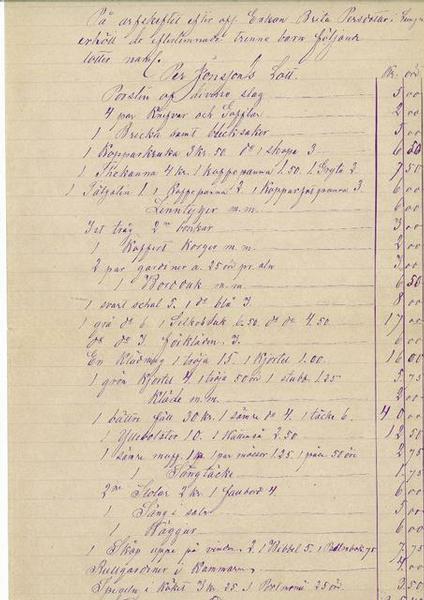 På arfskiftet efter afl. Enkan Brita Persdotter i
erhöll de efterlemnade trenne barn följande
lotter neml.
Per Jönssons Lott. Kr. öre
Porslin af diverse slag 5,00
4 par Knifvar och Gafflar 2,00
1 Bricka samt blecksaker 3,00
1 Kopparkruka 3 kr. 50 do 1 skopa 3 6 50
1 Thekanna 4 kr. 1 kaffepanna 1.50. 1 Gryta 2 7,50
1 1 Kaffepanna 2 1 Kopparpanna 3 6 00
Lenntyger m.m. 6,00
Jät tråg 2ne 3 00
1 Koffert Korgar m.m. 2 00
2 par gardiner a. 25 öre pr. aln 3,00
1 Bordduk m.m. 6 50
1 svart schal 5. 1 do blå 3 8 00
1 grå do 6 1 Silkesduk 6.50. do do 4.50 17 00
do do 3 förkläden. 3. 6 00
En Klädning 1 tröja 15. 1 Kjortel 1.00. 16 00
1 grön Kjortel 4 1 tröja 50 öre 1 stubb. 1.25 5,75
Kläde m.m. 2 00
1 bättre fäll 30 kr. 1 sämre do 4. 1 täcke 6 40 00
1 Yllebolster 10. 1 2.50 12 50
1 sämre muff 1 kr 1 par mössor 1.25 1 påse 50 öre 2 75
1 Sängtäcke 1,75
2ne Stolar 2 kr. 1 4. 6 00
1 Säng i salen 5 00
1 Väggur 6 00
1 Skåp uppe på vinden 2. 1 Bibbel 5. 1 75 7.75
Rullgardiner i Kammaren 4 00
Spegeln i Köket 3 kr. 25. 1 Portmonä 25 öre. 3.50